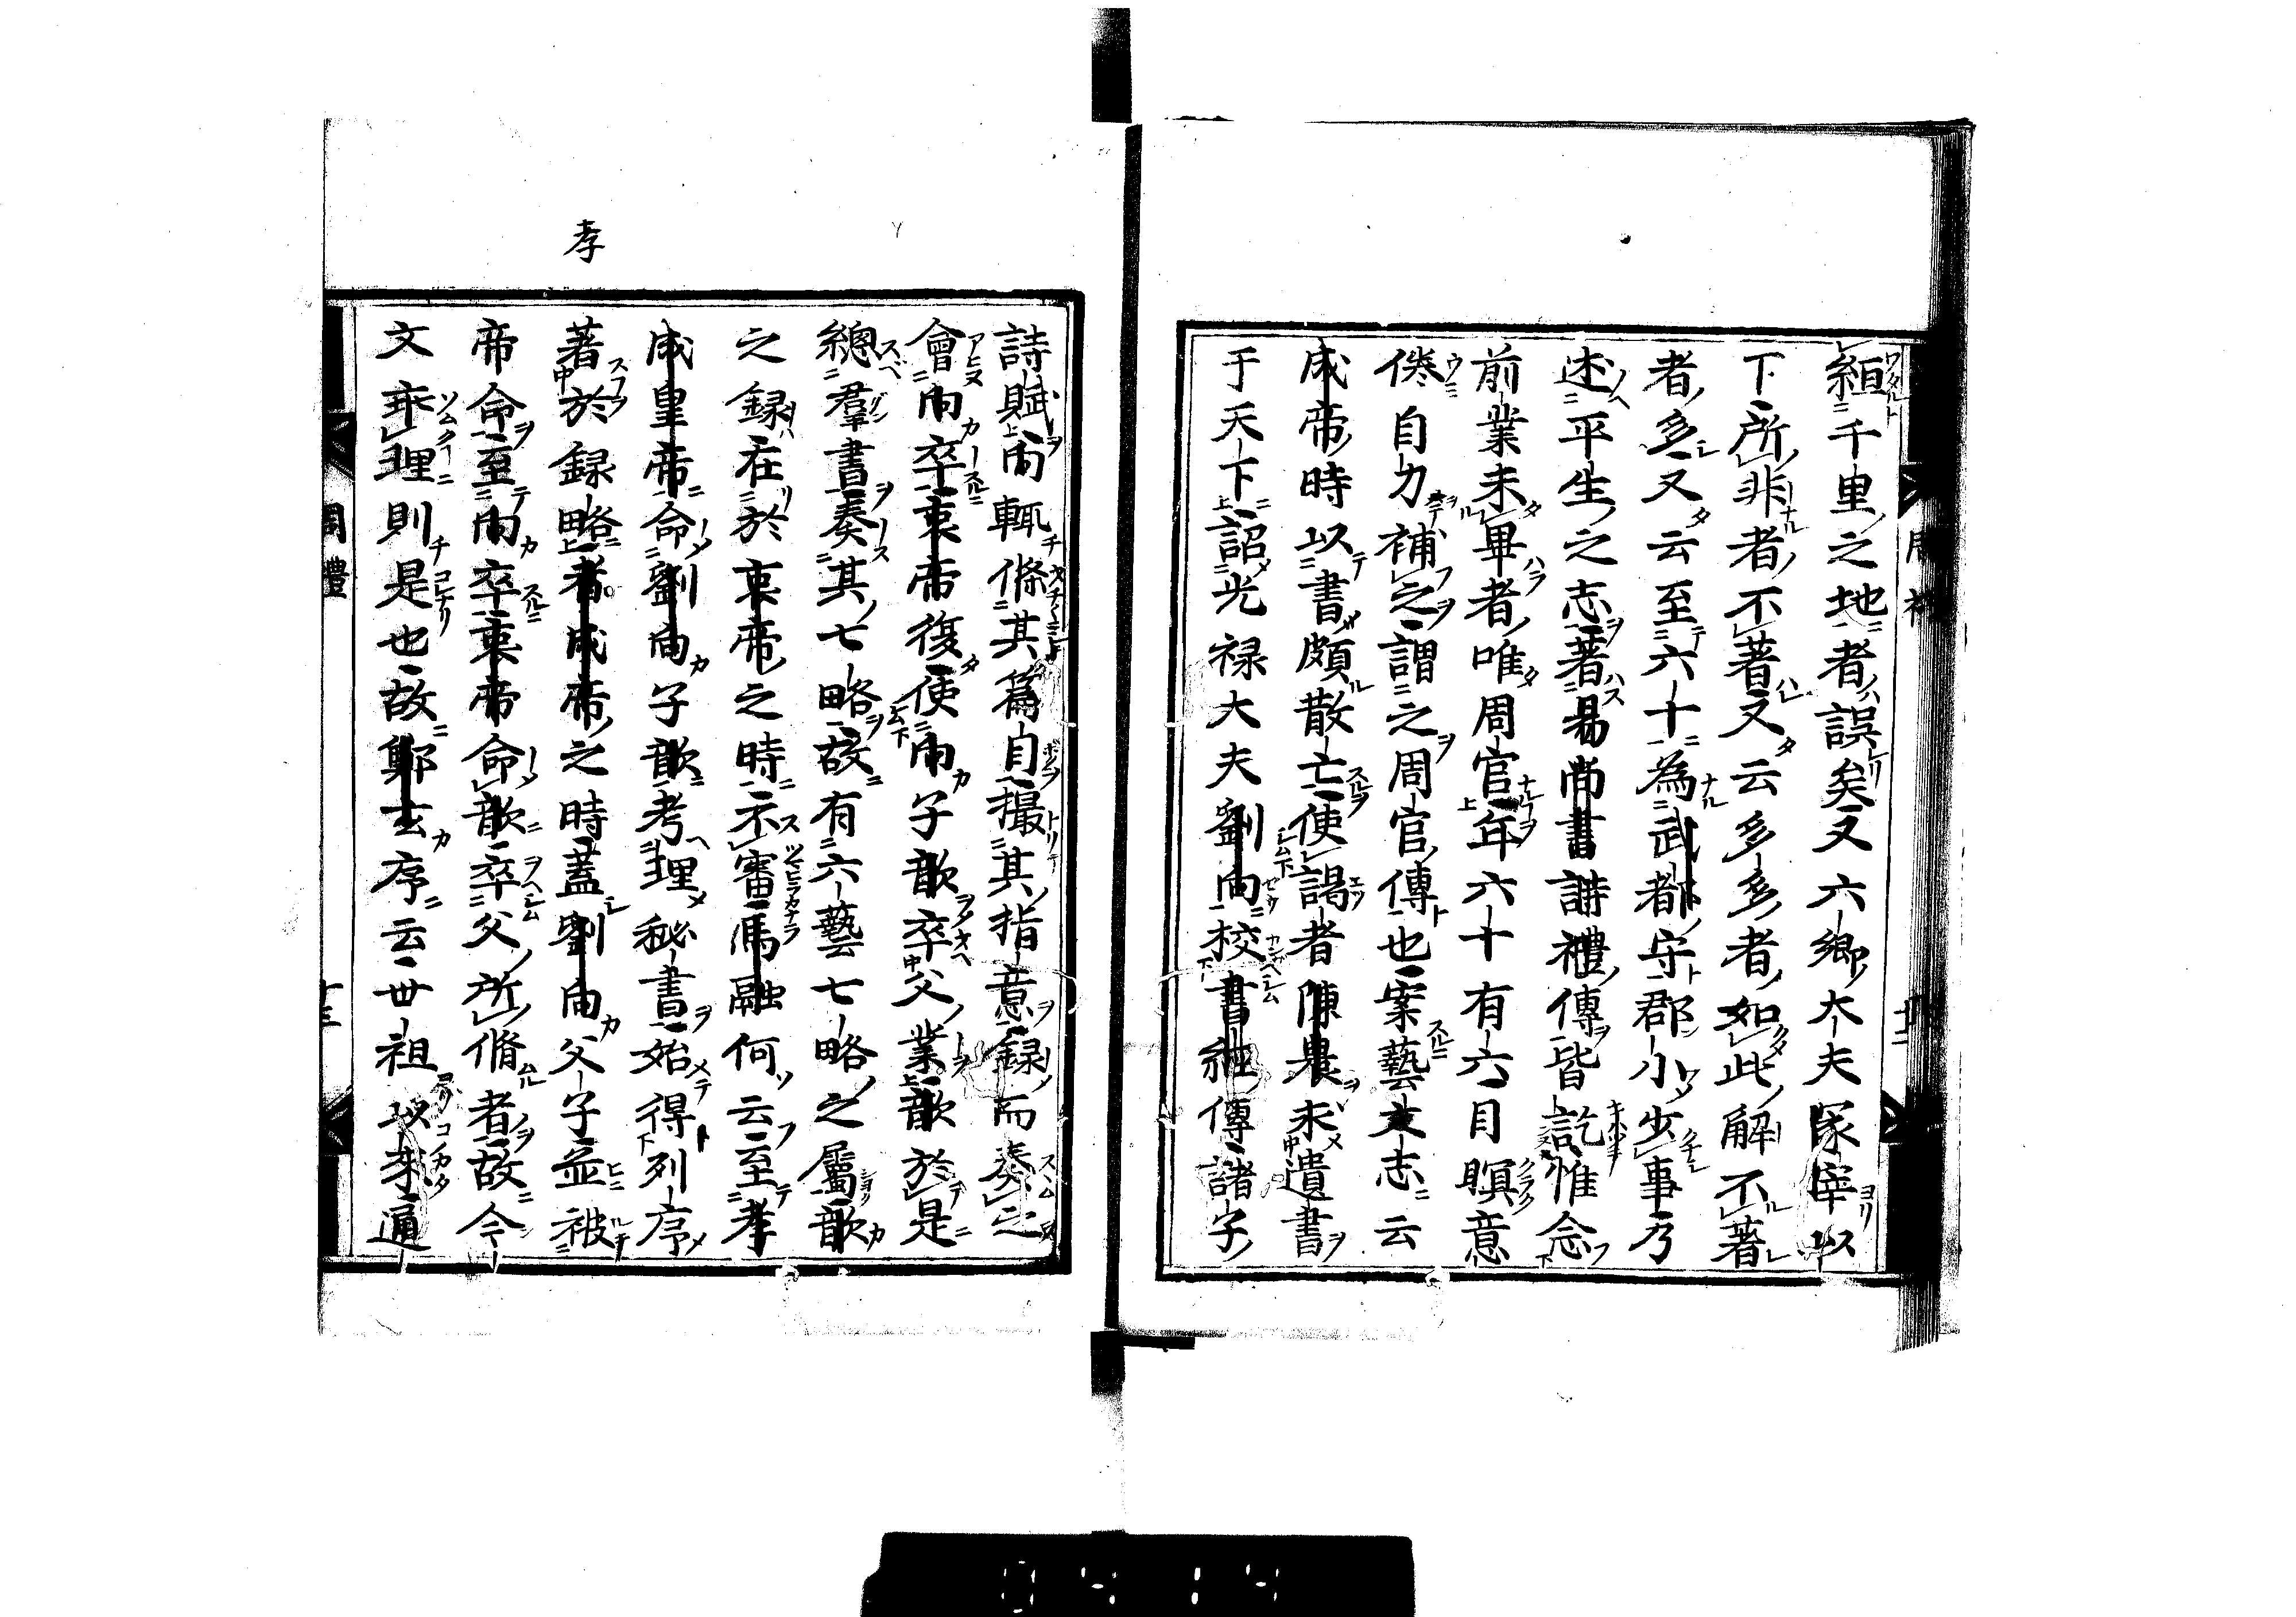 絙千里之地者誤矣又六郷大夫冢宰以
下所非者不著又云多多者如此解不著
者多又云至六十為武都守郡小少事乃
述平生之志著易尚書詩禮傳皆訖惟念
前業未畢者唯周官年六十有六目瞑意
倦自力補之謂之周官傳也案藝文志云
成帝時以書頗散亡使謁者陳農求遺書
于天下詔光禄大夫劉向校書經傳諸子
詩賦向輒條其篇自撮其指意録而奏之
會向卒哀帝復使向子歆卒父業歆於是
總羣書奏其七略故有六藝七略之屬歆
之録在於哀帝之時不審馬融何云至孝
成皇帝命劉向子歆考理秘書始得列序
著於録略者成帝之時蓋劉向父子並被
帝命至向卒哀帝命歆卒父所脩者故今
文乖理則是也故鄭玄序云世祖以來通
孝
周禮
十二
周禮
十三